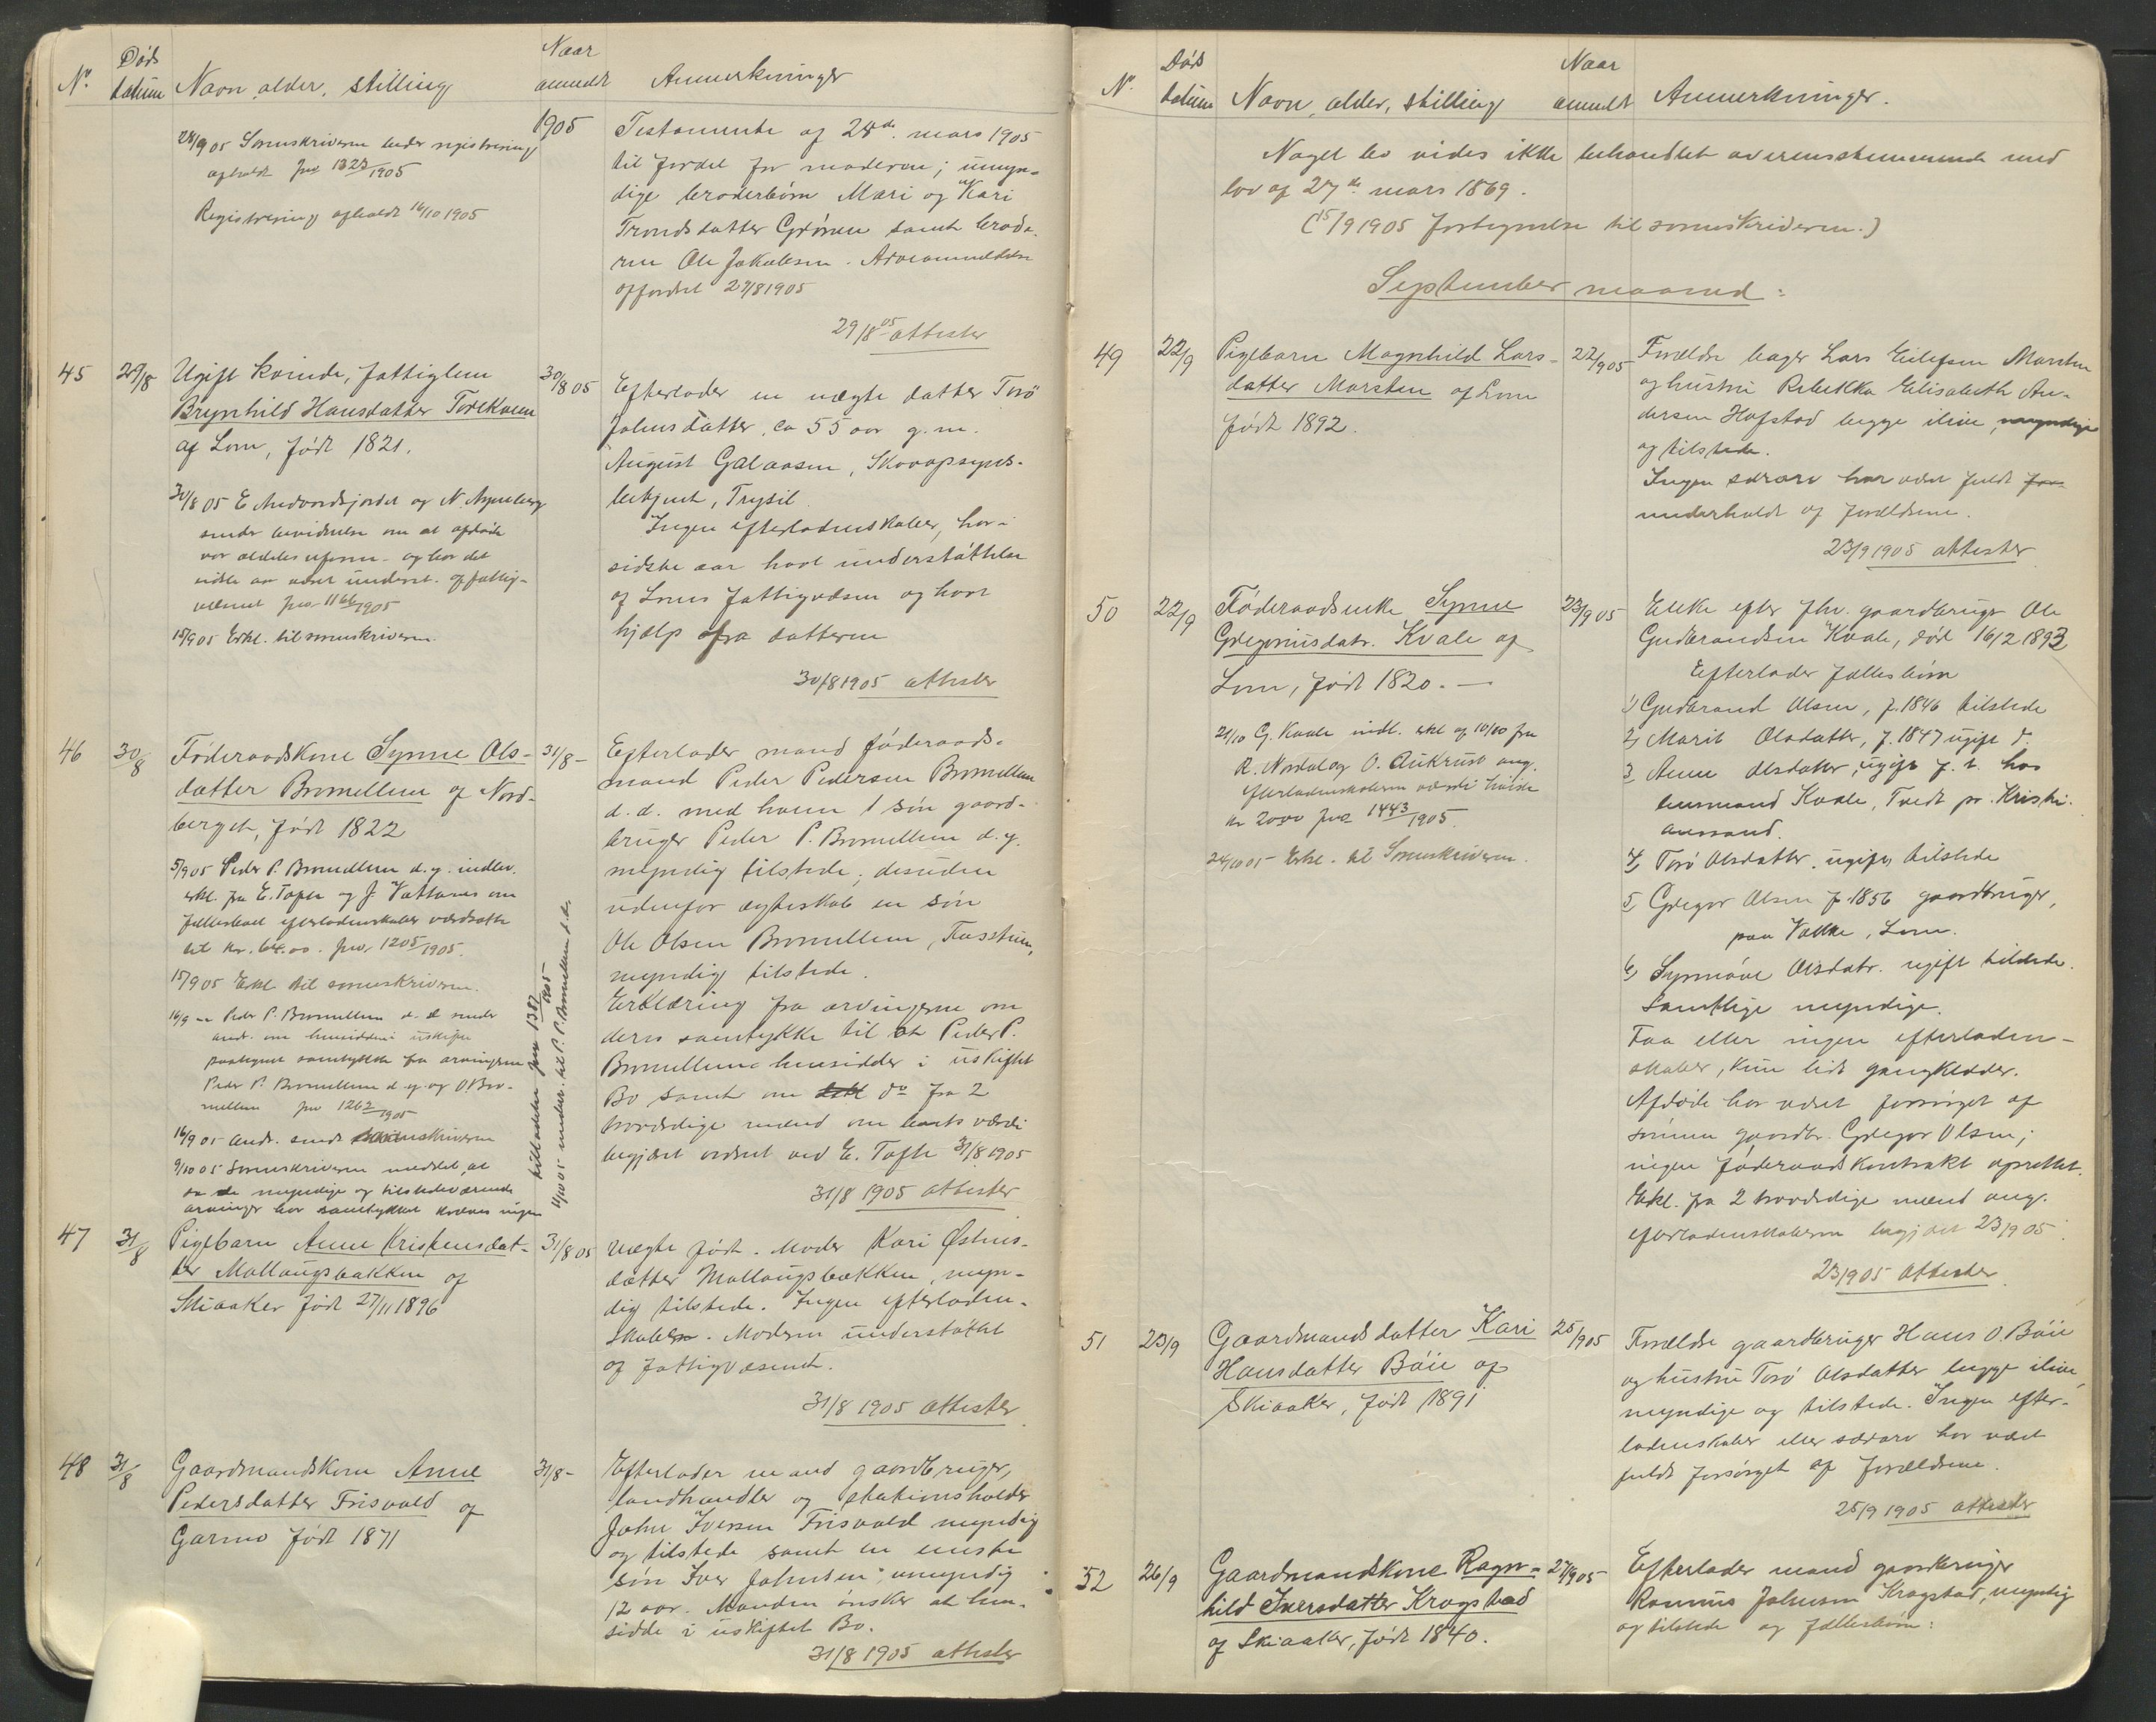 Nº Døds datum Navn, alder, stilling Naar anmeldt Anmerkninger
1905
28/9 05 Sorenskriveren beder registrering
afholdt 1323/1905
Registrering afholdt 14/10 1905
Testamente af 28de mars 1905
til fordel for moderen; umyn-
dige broderbørn Mari og Kari
Trondsdatter Grønen samt brode-
ren Ole Jakobsen.
opfordret 29/8 1905
29/8 05 attester
45 29/8 Ugift kvinde, fattiglem
Brynhild Hansdatter
af Lom, født 1821.
30/8 05 E. og N.
sender bevidnelse om at afdøde
var aldeles uformu- og har det
sidste aar været underst. af fattig-
væsenet 1166/1905
15/9 05 Erkl. til sorenskriveren.
30/8 05
Efterlader en uægte datter Torø
Johnsdatter, ca 55 aar g.m.
August Galaasen, Skovopsyns-
betjent, Trysil.
Ingen efterladenskaber, har i
sidste aar havt understøttelse
af Loms fattigvæsen og havt
hjælp fra datteren
30/8 1905 attester
46 30/8 Føderaadskone Synne Ols-
datter Bromellem af Nord-
berget, født 1822
5/9 05 Peder P. Bromellem d.y. indlev.
erkl. fra E. Tofte og J. Vottarus om
fællesboet efterladenskaber værdsatte
til kr. 64.00. 1205/1905.
15/9 05 Erkl. til sorenskriveren.
16/9 - Peder P. Bromellem d. æ. sender
and. om hensidden i uskiftet
paategnet samtykke fra arvingerne
Peder P. Bromellem d.y. og O. Bro-
mellem 1262/1905
16/9 05 Andr. sendt sorenskriveren
9/10 05 Sorenskriveren meddelt, at
da de myndige og tilstedeværende
arvinger har samtykket kræves ingen
tilladelse 1387/1905
11/10 05 underr. til P. P. Bromellem d.æ.
31/8 -
Efterlader mand føderaads-
mand Peder Pedersen Bromellem
d.æ. med ham 1 søn gaard-
bruger Peder P. Bromellem d.y.
myndig tilstede; desuden
udenfor ægteskab en søn
Ole Olsen Bromellem,
myndig tilstede.
Erklæring fra arvingerne om
deres samtykke til at Peder P.
Bromellem hensidder i uskiftet
Bo samt om do fra 2
troværdige mænd om boets værdi
begjæret ordnet ved E. Tofte 31/8 1905
31/8 1905 attester
47 31/8 Pigebarn Anne Kristensdat-
ter Mollaugsbakken af
Skiaaker født 27/11 1896
31/8 05
Uægte født. Moder Kari Østens-
datter Mollaugsbækken, myn-
dig tilstede. Ingen efterladen-
skaber. Modren understøttet
af fattigvæsenet.
31/8 1905 attester
48 31/8 Gaardmandskone Anne
Pedersdatter Frisvold af
Garmo født 1871
31/8 -
Efterlader mand gaardbruger,
landhandler og skationsholder
John Iversen Frisvold myndig
og tilstede samt en eneste
søn Iver Johnsen, umyndig
12 aar. Manden ønsker at hen-
sidde i uskiftet Bo.
31/8 1905 attester
Nº Døds datum Navn, alder, stilling Naar anmeldt Anmerkninger.
Noget bo vides ikke behandlet overensstemmende med
lov af 27de mars 1869.
(15/9 1905 fortegnelse til sorenskriveren.)
September maaned:
49 22/9 Pigebarn Magnhild Lars-
datter Marsten af Lom
født 1892.
22/9 05
Forældre bager Lars Eilefsen Marsten
og hustru Rebekka Elisabeth An-
dersen Hofstad begge ilive, myndige
og tilstede.
Ingen særarv har været fuldt
underholdt af forældrene.
23/9 1905 attester
50 22/9 Føderaadsenke Synne
Gregoriusdatr. Kvale af
Lom, født 1820. —
21/10 G. Kvale indl. erkl. af 10/10 fra
R. Nordal og O. Aukrust ang.
efterladenskaberne værdi høiste
kr 20.00 1443/1905.
24/10 05 - Erkl. til Sorenskriveren.
23/9 05
Enke efter fhv. gaardbruger Ole
Gudbrandsen Kvale, død 16/2 1893
Efterlader fællesbørn
1) Gudbrand Olsen, f. 1846 tilstede
2) Marit Olsdatter, f. 1847 ugift d.
3) Anne Olsdatter, ugift f. t. hos
lensmand Kvale, Tvedt pr. Kristi-
anssand.
4) Torø Olsdatter ugift, tilstede
5) Gregor Olsen f. 1856 gaardbruger,
paa Vække, Lom.
6) Synnøve Olsdatr. ugift tilstede.
Samtlige myndige.
Faa eller ingen efterladen-
skaber, kun lidt gangklæder.
Afdøde har været forsørget af
sønnen gaardbr. Gregor Olsen;
ingen føderaadskontrakt oprettet.
Erkl. fra 2 troværdige mænd ang.
efterladenskaberne begjært 23/9 05.
23/9 05 attester
51 23/9 Gaardmandsdatter Kari
Hansdatter Bøie af
Skiaaker, født 1891
25/9 05
Forældre gaardbruger Hans O. Bøie
og hustru Torø Olsdatter begge ilive,
myndige og tilstede. Ingen efter-
ladenskaber eller særarv har været
fuldt forsørget af forældrene.
25/9 1905 attester
52 26/9 Gaardmandskone Ragn-
hild Iversdatter Krogstad
af Skiaaker, født 1840.
27/9 05
Efterlader mand gaardbruger
Rasmus Johnsen Krogstad, myndig
og tilstede og fællesbørn: